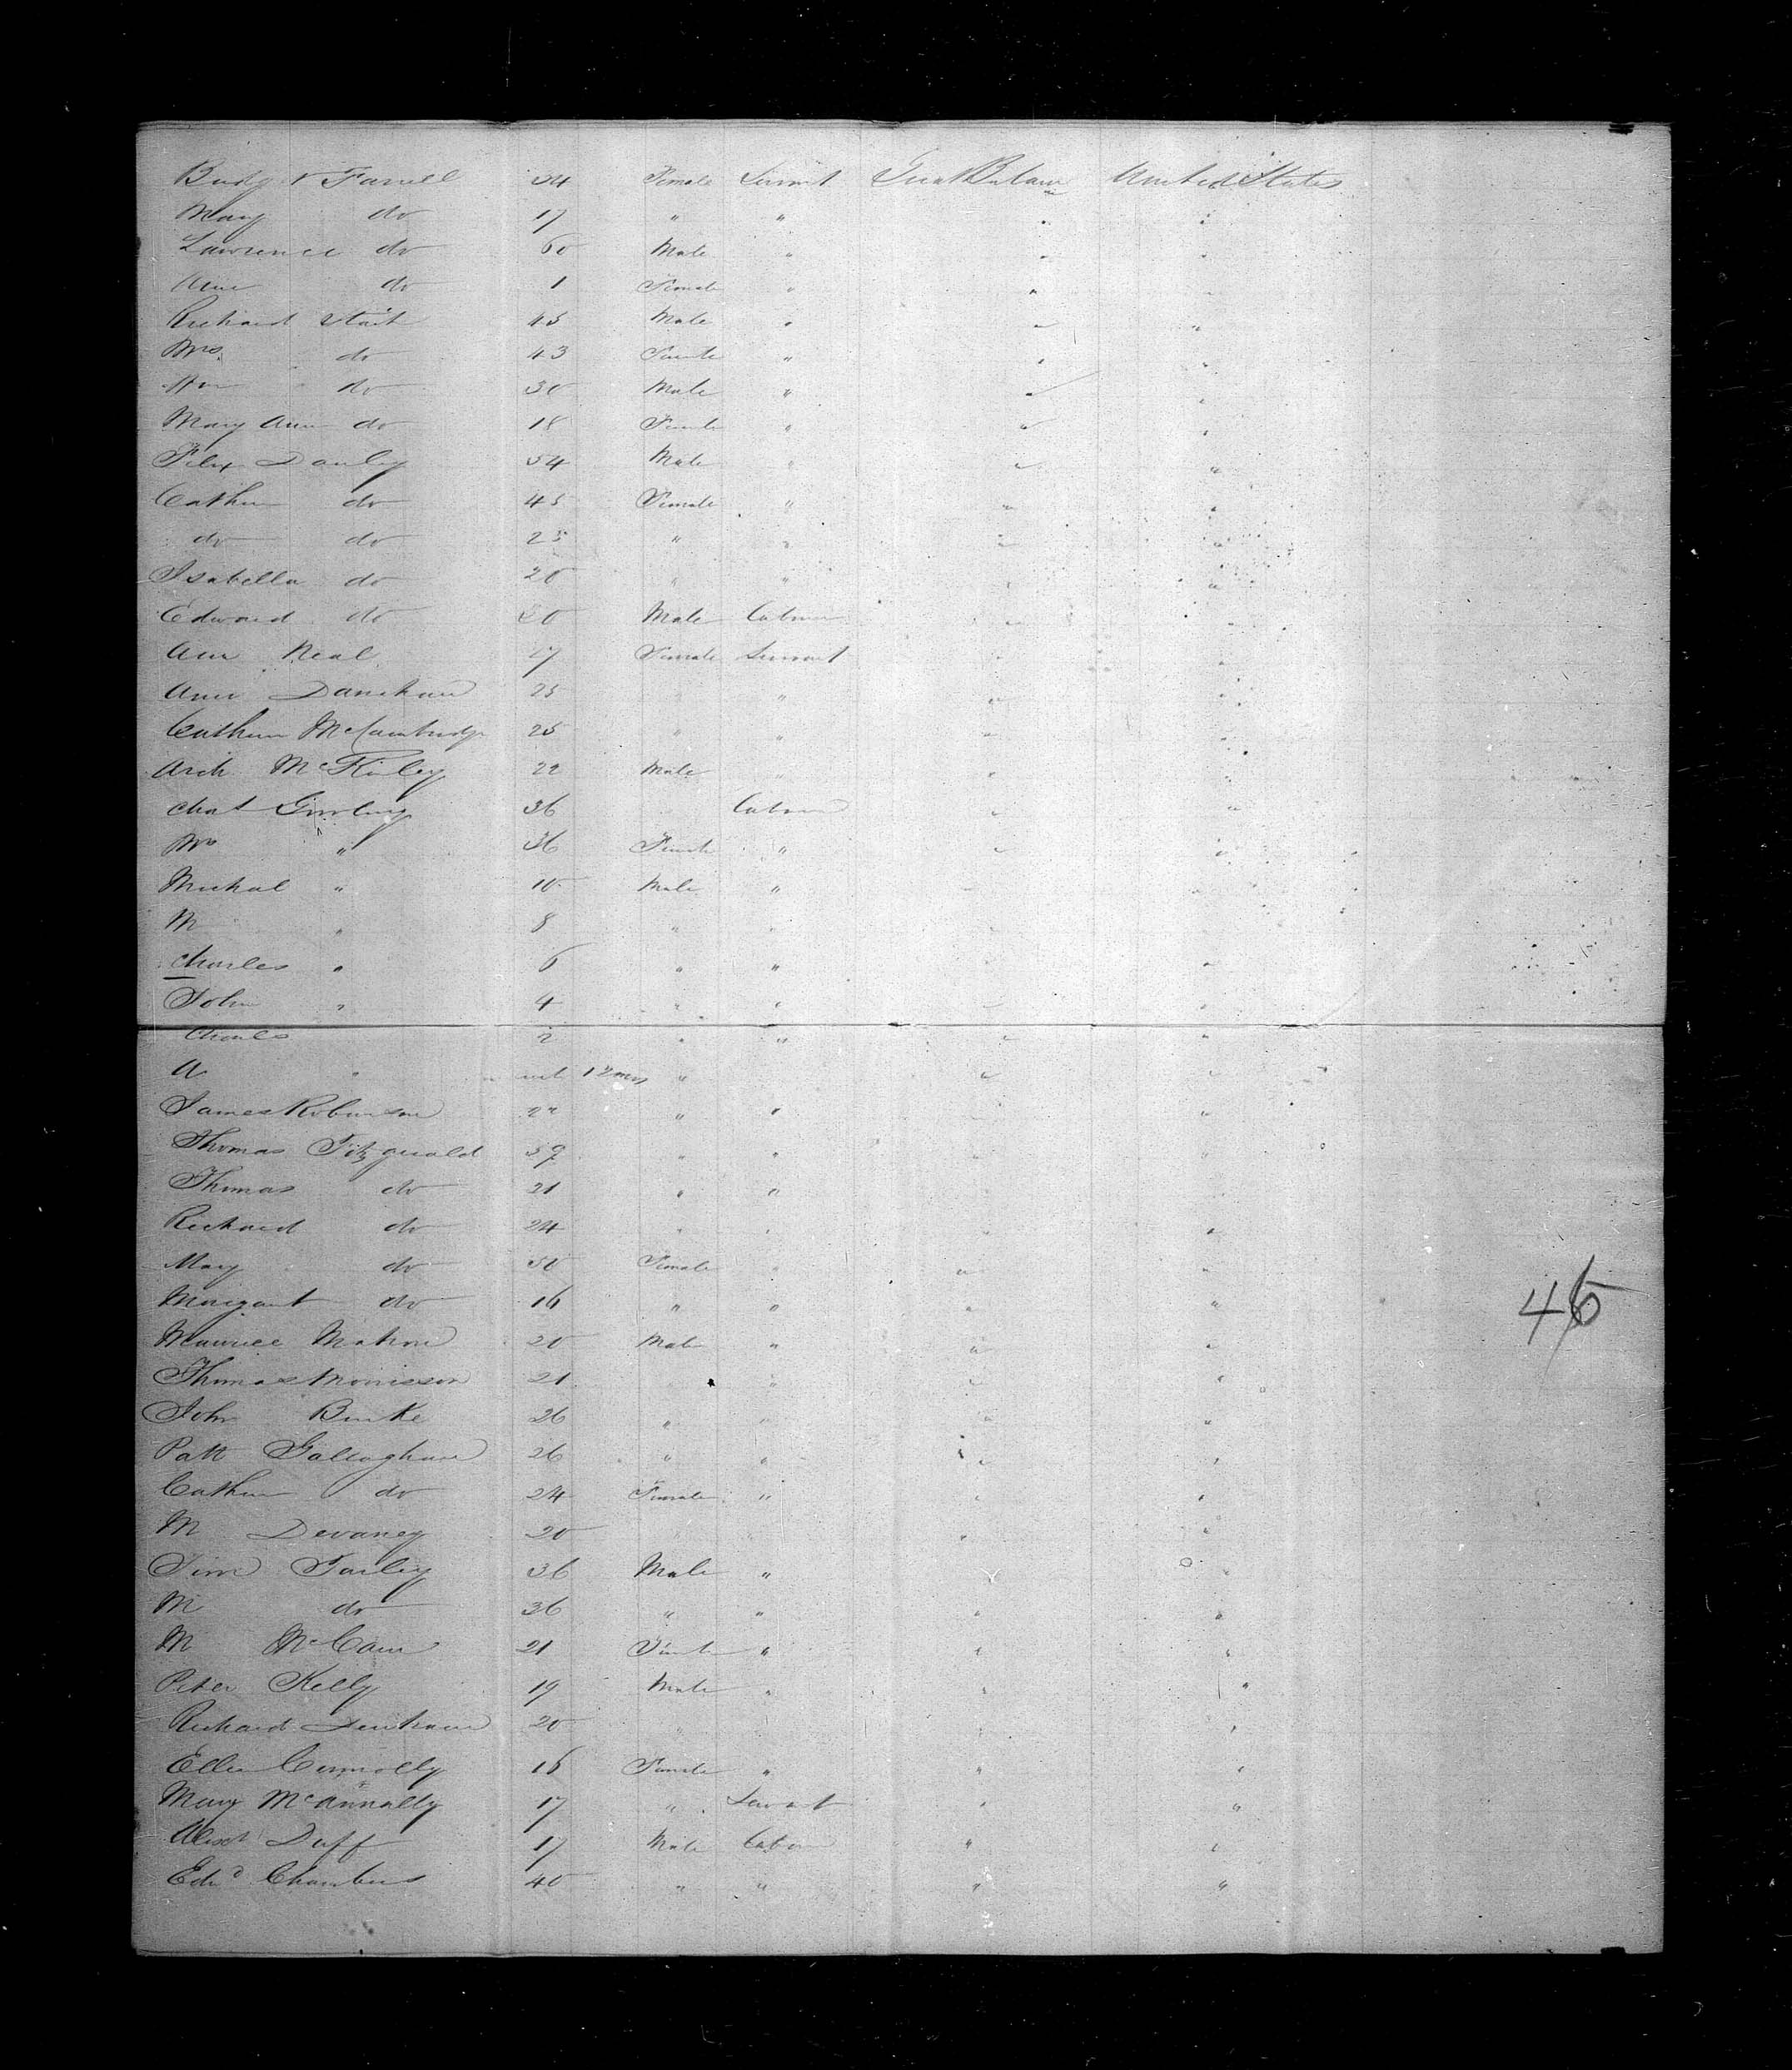 Bridgt Farrell 34 Female Servant Great Britain United States
Mary do 17 " " " "
Lawrence do 60 Male " " "
Ann do 1 Female " " "
Richard Stait 45 Male " " "
Mrs do 43 Female " " "
do 30 Male " " "
Mary Ann do 18 Female " " "
Felix Dauly 54 Male " " "
Cathn do 45 Female " " "
do do 25 " " " "
Isabella do 20 " " " "
Edward do 20 Male Labour " "
Ann Neal 17 Female Servant " "
Ann 25 " " " "
Cathn McCambridge 25 " " " "
Arch McKinley 22 Male " " "
36 Labour " "
Mrs " 36 Female " " "
Michal " 10 Male " " "
M " 8 " " " "
Charles " 6 " " " "
John " 4 " " " "
Charles 2 " " " "
A " 12 mos " " "
James Robinson 22 " " "
Thomas Fitzgerald 59 " " " "
Thomas do 21 " "
Richard do 24 " " " "
Mary do 50 Female " " "
Margaret do 16 " " " "
Maurice Mahon 20 Male " " "
Thomas Morrisson 21 " " "
John Burke 26 " " " "
Patt Gallaghan 26 " " " "
Cathn do 24 Female " " "
M Devaney 20 " "
Tim Farley 36 Male " " "
M do 36 " " " "
M McCann 21 Female " " "
Peter Kelly 19 Male " " "
Richard 20 " "
Ellen Connolly 16 Female " " "
Mary McAnnally 17 " Servant " "
Alexr Duff 17 Male Labour " "
Edwd Chambers 40 " " " "